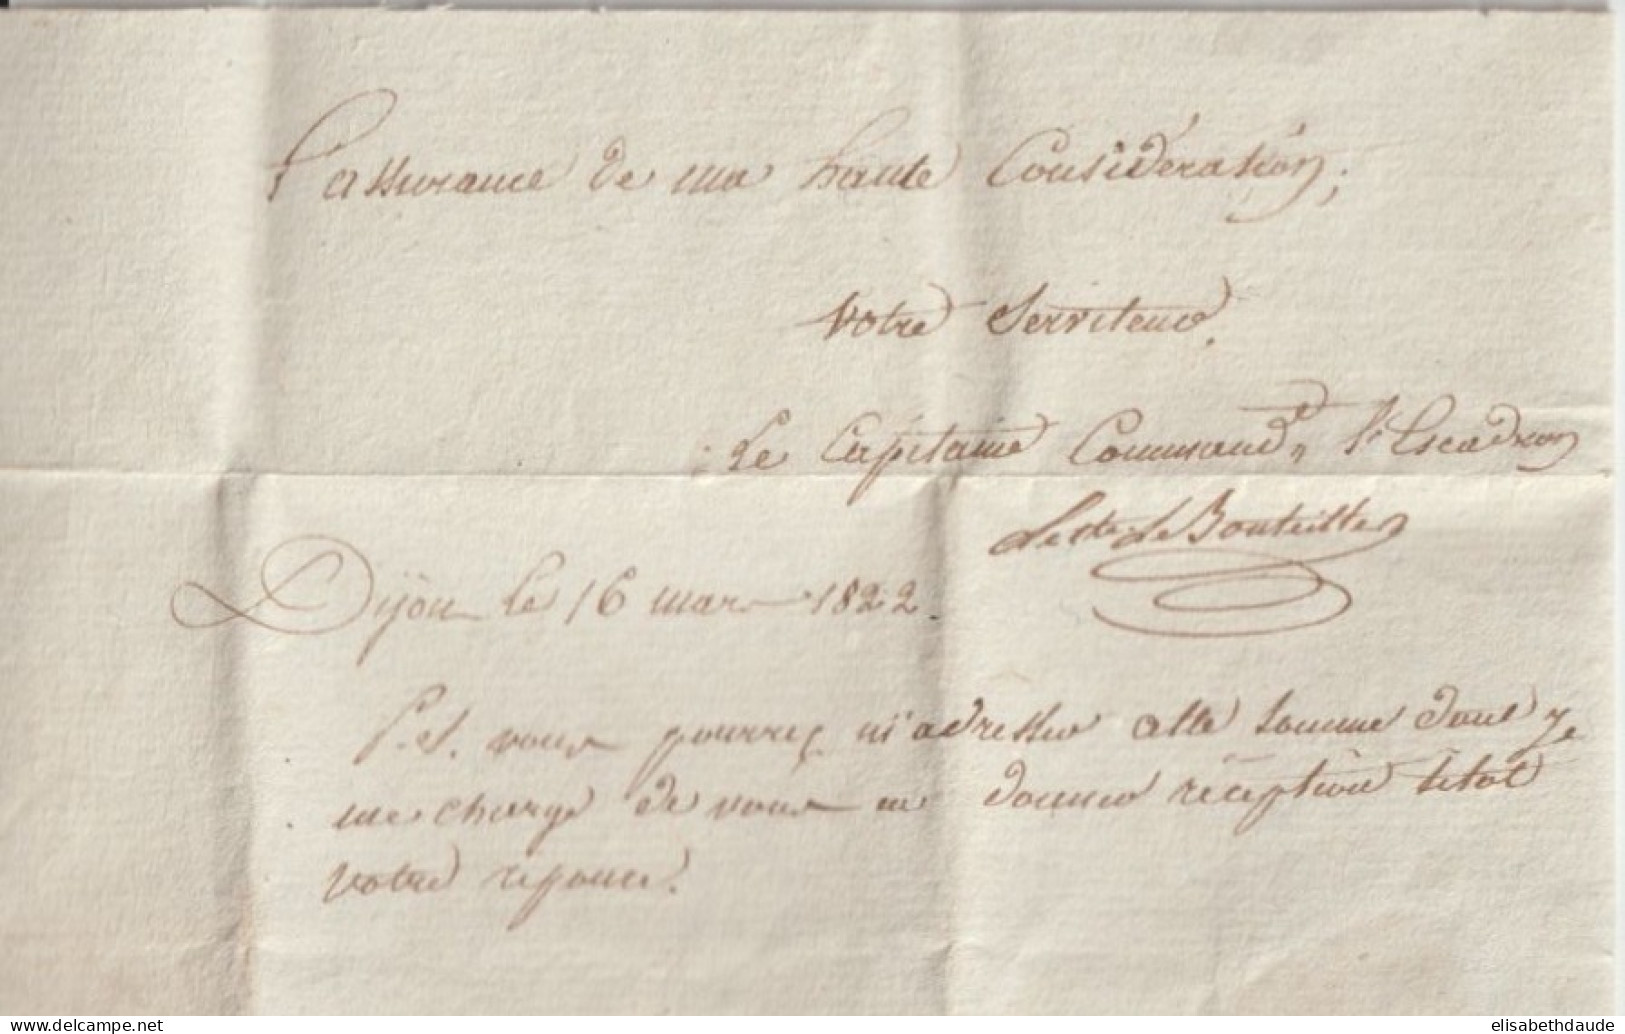 l'assurance de ma haute Considération,
votre serviteur.
Le Capitaine Command
Escadron
Le Cte Le Bouteiller
Dijon le 16 mars 1822.
P.S. vous pourrez m'adresser cette somme dont je
me charge de vous en donner réception sitot
votre réponse.
www.delcampe.net
elisabethdaude